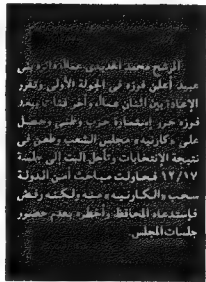 المرشح محمد الحديدى عمال دائرة بنى
عبيد أعلن فوزه فى الجولة الأولى وتقرر
الإعادة بين إثنان عمال وآخر فئات وبعد
فوزه حرر إستمارة حزب وطنى وحصل
على «كارنيه» مجلس الشعب وطعن فى
نتيجة الانتخابات وتأجل البت إلى جلسة
١٢/١٧ فحاولت مباحث أمن الدولة
سحب «الكارنيه» منه ولكنه رفض
فإستدعاه المحافظ وأخطره بعدم حضور
جلسات المجلس.